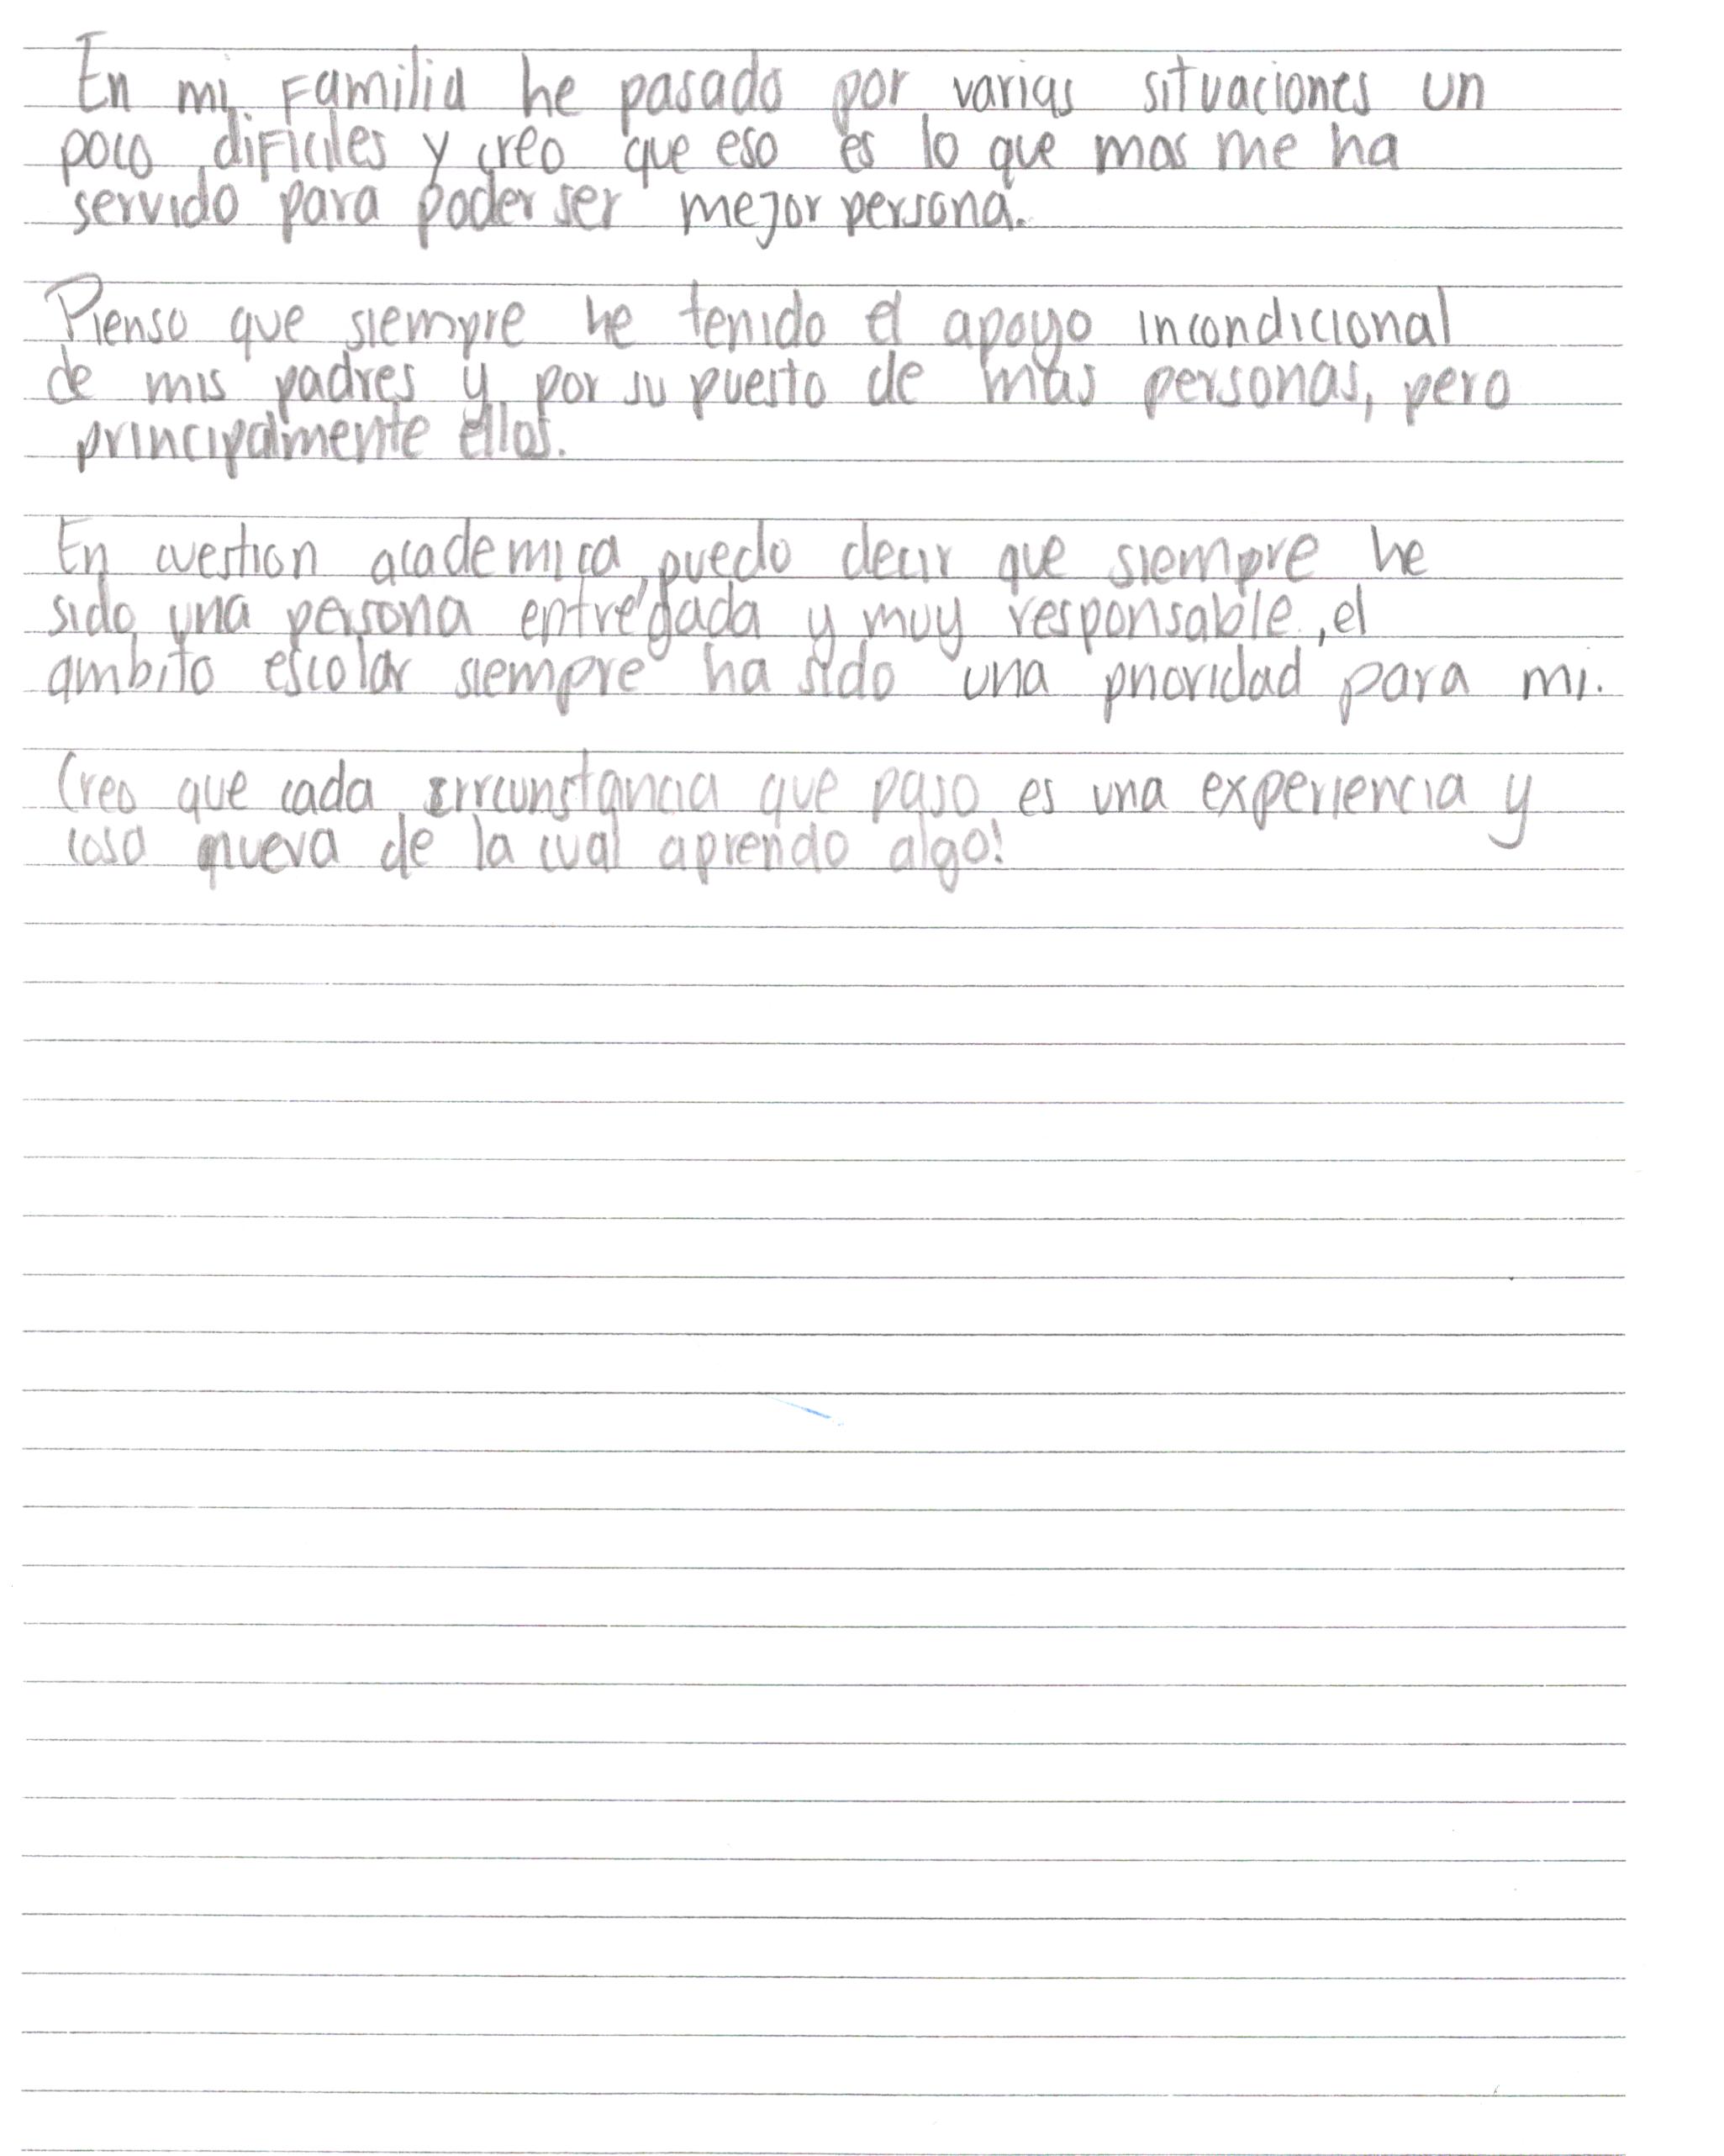 En mi Familia he pasado por varias situaciones un
poco diFiciles y creo que eso es lo que mas me ha
servido para poder ser mejor persona.
Pienso que siempre he tenido el apoyo incondicional
de mis padres y por su puesto de mas personas, pero
principalmente ellos.
En cuestion academica, puedo decir que siempre he
sido una persona entregada y muy responsable, el
ambito escolar siempre ha sido una prioridad para mi.
Creo que cada circunstancia que paso es una experiencia y
cosa nueva de la cual aprendo algo!